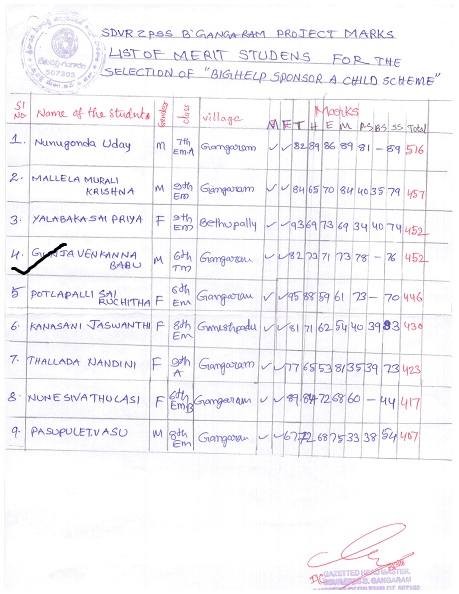 SDVR ZPSS B'GANGARAM PROJECT MARKS
LIST OF MERIT STUDENS FOR THE
SELECTION OF "BIGHELP SPONSOR A CHILD SCHEME"
507303
Marks
Sl No Name of the Students Gender class village M E T H E M P.S B.S SS Total
1. Nunugonda Uday M 7th EM-A Gangaram ✓ ✓ 82 89 86 89 81 – 89 516
2. MALLELA MURALI KRISHNA M 9th EM Gangaram ✓ ✓ 84 65 70 84 40 35 79 457
3. YALABAKA SAI PRIYA F 9th EM Bethupally ✓ ✓ 93 69 73 69 34 40 74 452
4. GUNJA VENKANNA BABU M 6th TM Gangaram ✓ ✓ 82 73 71 73 78 – 76 452
5 POTLAPALLI SAI RUCHITHA F 6th EM Gangaram ✓ ✓ 95 88 59 61 73 – 70 446
6. KANASANI JASWANTHI F 8th EM ✓ ✓ 81 71 62 54 40 39 83 430
7. THALLADA NANDINI F 9th A Gangaram ✓ ✓ 77 65 53 81 35 39 73 423
8. NUNE SIVA THULASI F 6th EM B Gangaram ✓ ✓ 89 84 72 68 60 – 44 417
9. PASUPULETI VASU M 8th EM Gangaram ✓ ✓ 67 72 68 75 33 38 54 407
GAZETTED HEADMASTER
B. GANGARAM